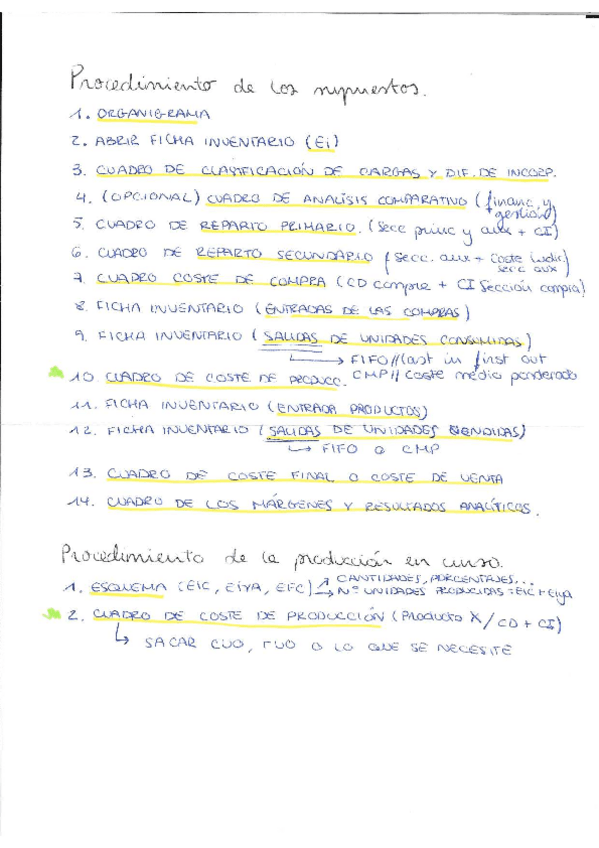 Procedimiento de los supuestos.
1. ORGANIGRAMA
2. ABRIR FICHA INVENTARIO (Ei)
3. CUADRO DE CLASIFICACIÓN DE CARGAS Y DIF. DE INCORP.
4. (OPCIONAL) CUADRO DE ANALISIS COMPARATIVO (financ. y gestión)
5. CUADRO DE REPARTO PRIMARIO. (Secc princ y aux + CI)
6. CUADRO DE REPARTO SECUNDARIO (secc. aux + Coste indic. secc aux)
7. CUADRO COSTE DE COMPRA (CD compra + CI Sección compra)
8. FICHA INVENTARIO (ENTRADAS DE LAS COMPRAS)
9. FICHA INVENTARIO (SALIDAS DE UNIDADES CONSUMIDAS)
→ FIFO//last in first out
10 CUADRO DE COSTE DE PRODUCC. CMP// coste medio ponderado
11. FICHA INVENTARIO (ENTRADA PRODUCTOS)
12. FICHA INVENTARIO (SALIDAS DE UNIDADES VENDIDAS)
→ FIFO O CMP
13. CUADRO DE COSTE FINAL O COSTE DE VENTA
14. CUADRO DE LOS MÁRGENES Y RESULTADOS ANALÍTICOS.
Procedimiento de la producción en curso.
1. ESQUEMA (EIC, EIYA, EFC) → CANTIDADES, PORCENTAJES...
→ Nº UNIDADES PRODUCIDAS = EIC + EIYA
2. CUADRO DE COSTE DE PRODUCCIÓN (Producto X / CD + CI)
↳ SACAR CUO, TUO O LO QUE SE NECESITE